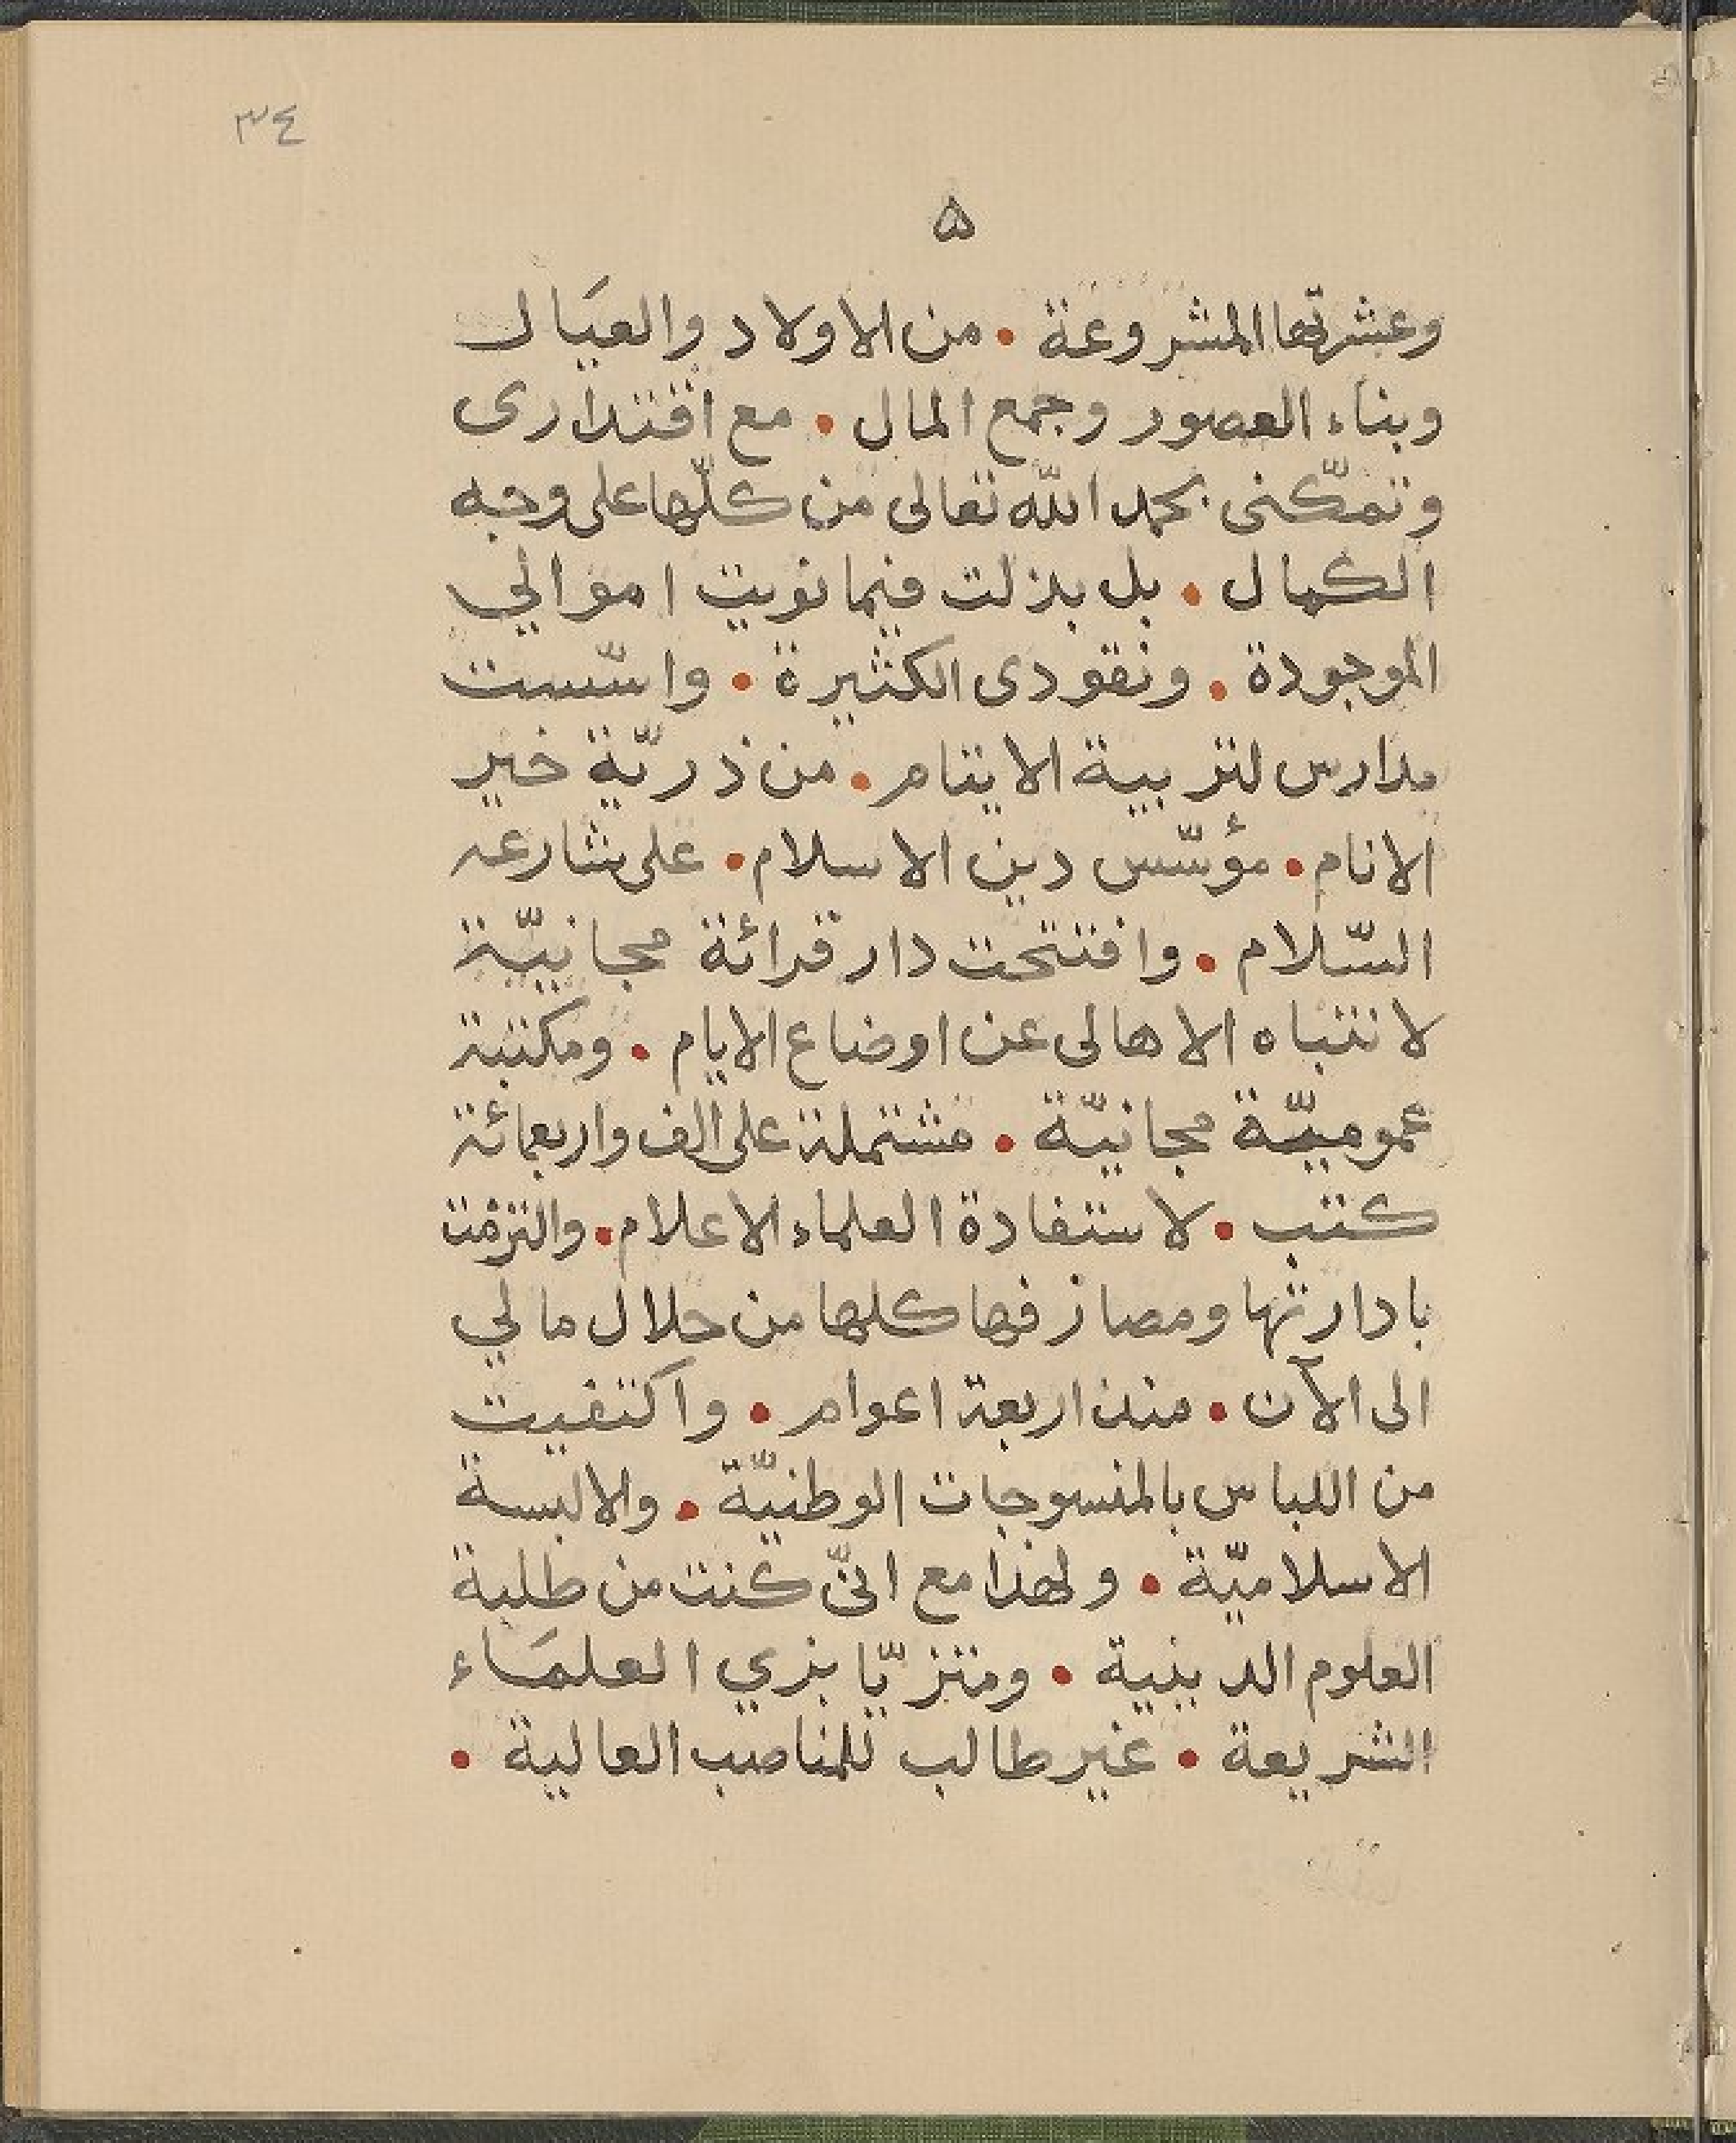 ٣٤
۵
وعشرتها المشروعة • من الاولاد والعيَال
وبناء القصور وجمع المال • مع اقتدارى
وتمكّنى بحمد الله تعالى من كلّها على وجه
الكمال • بل بذلت فيما نويت اموالي
الموجودة • ونقودى الكثيرة • واسّست
مدارس لتربية الايتام • من ذريّة خير
الانام • مؤسّس دين الاسلام • على شارعه
السّلام • وافتتحت دار قرائة مجانيّة
لانتباه الاهالى عن اوضاع الايام • ومكتبة
عموميّة مجانيّة • مشتملة على الف واربعمائة
كتب • لاستفادة العلماء الاعلام • والتزمت
بادارتها ومصارفها كلها من حلال مالي
الى الآن • منذ اربعة اعوام • واكتفيت
من اللباس بالمنسوجات الوطنيّة • والالبسة
الاسلاميّة • ولهذا مع انىّ كنت من طلبة
العلوم الدينية • ومتزيّا بزي العلمَاء
الشريعة • غير طالب للمناصب العالية •